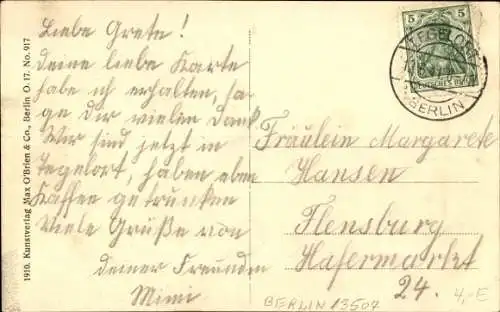 Liebe Grete!
Deine liebe Karte
habe ich erhalten, sa-
ge dir vielen Dank
Wir sind jetzt in
Tegelort, haben eben
Kaffen getrunken
Viele Grüße von
deiner Freundin
Mimi
1910. Kunstverlag Max O'Brien & Co., Berlin O. 17. No. 917
5 5
DEUTSCHES REICH
TEGELORT
BERLIN
Fräulein Margarete
Hansen
Flensburg
Hafermarkt
24.
4,-E
BERLIN 13507